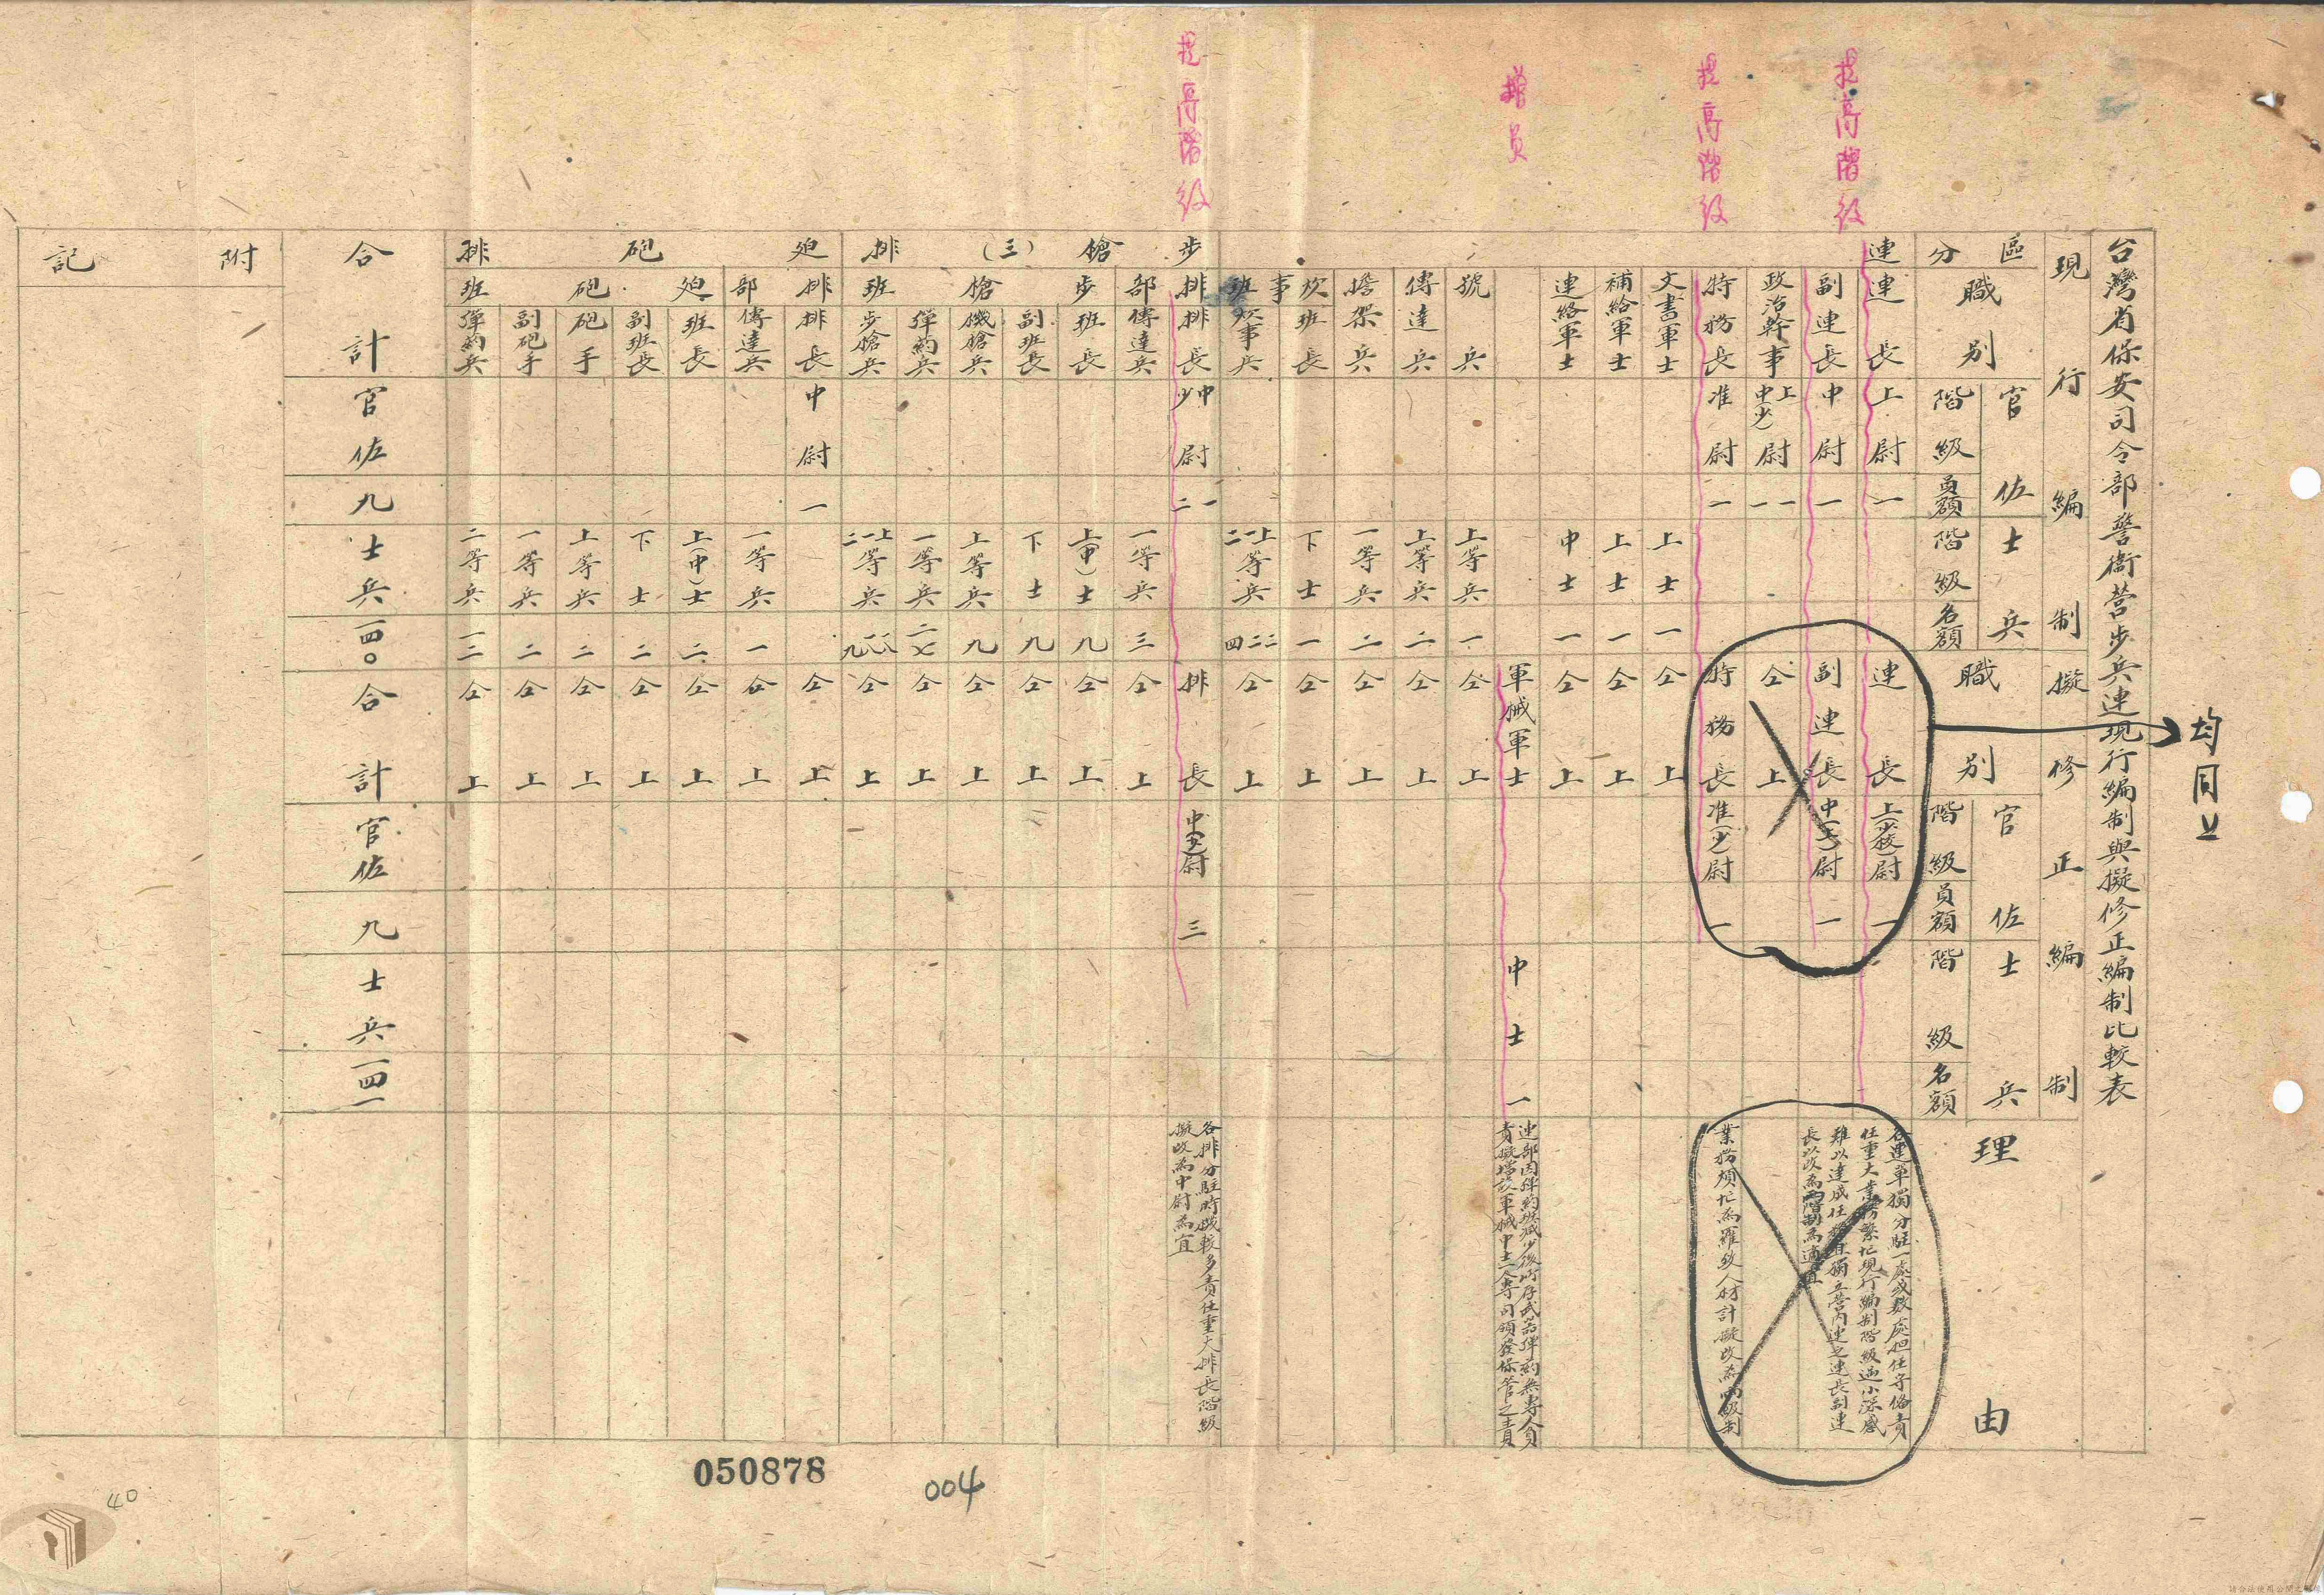 台灣省保安司令部警衞營步兵連現行編制與擬修正編制比較表
均同上
現行編制
擬修正編制
區分
職別
官佐
階級
員額
士兵
階級
名額
職別
官佐
階級
員額
士兵
階級
名額
理由
提高階級
連
連長 上尉 一
連長 上(少校)尉 一
各連單獨分駐一處或數處担任守俻責
任重大業務繁忙現行編制階級過小深感
難以達成任務且獨立營內連之連長副連
長以改為兩階制為適宜
副連長 中尉 一
副連長 中(上)尉 一
政治幹事 上中(少)尉 一一
仝上
提高階級
特務長 准尉 一
特務長 准(少)尉 一
業務煩忙為羅致人材計擬改為兩級制
文書軍士 上士 一 仝上
補給軍士 上士 一 仝上
連絡軍士 中士 一 仝上
增員
軍械軍士 中士 一
連部因彈葯班減少後所存武器彈葯無專人負
責擬增設軍械中士一人專司領發保管之責
號兵 上等兵 一 仝上
傳達兵 上等兵 二 仝上
擔架兵 一等兵 二 仝上
炊事班
班長 下士 一 仝上
炊事兵 上一二等兵 二二四 仝上
提高階級
步槍(三)排
排部
排長 中少尉 一二
排長 中(少)尉 三
各排分駐時機較多責任重大排長階級
擬改為中尉為宜
傳達兵 一等兵 三 仝上
步槍班
班長 上(中)士 九 仝上
副班長 下士 九 仝上
機槍兵 上等兵 九 仝上
彈葯兵 一等兵 二七 仝上
步槍兵 上一二等兵 一八一八九 仝上
迫砲排
排部
排長 中尉 一 仝上
傳達兵 一等兵 一 仝上
迫砲班
班長 上(中)士 二 仝上
副班長 下士 二 仝上
砲手 上等兵 二 仝上
副砲手 一等兵 二 仝上
彈葯兵 二等兵 一二 仝上
合計 官佐 九 士兵 一四〇
合計 官佐 九 士兵 一四一
附記
050878
004
40